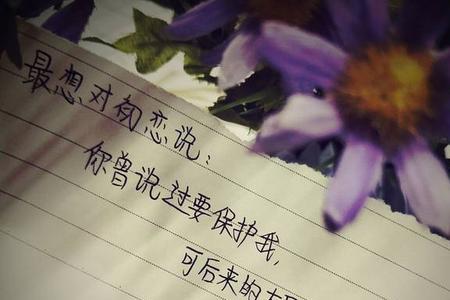 最想对初恋说：
你曾说过要保护我，
可后来的